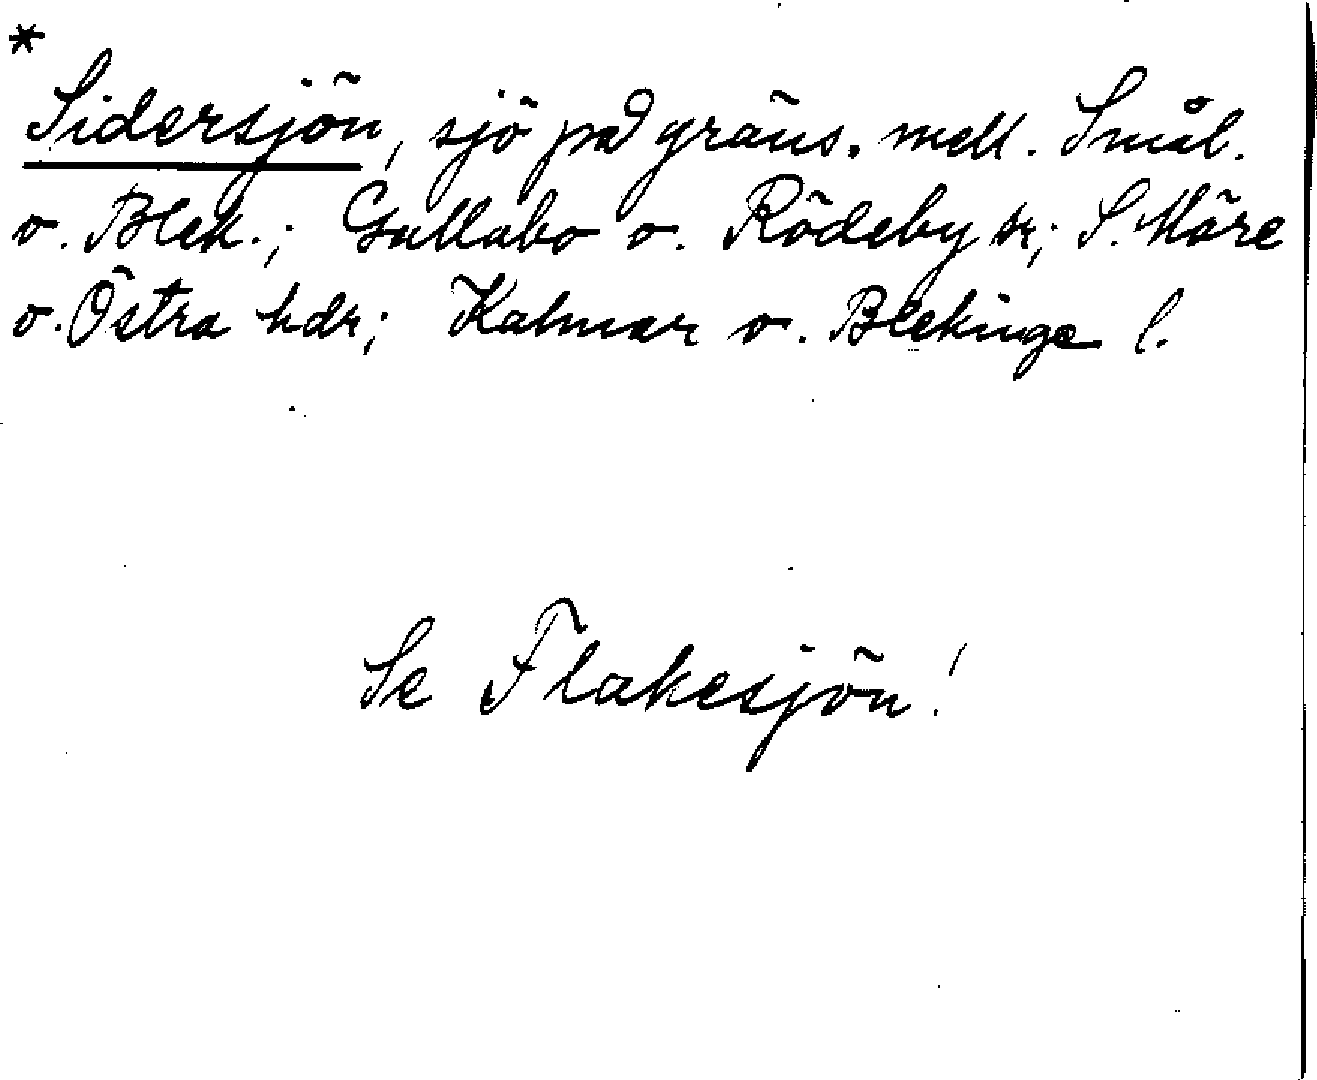 *
Sidersjön, sjö på gräns. mell. Smål.
o. Blek.; Gullabo o. Rödeby sr; S. Möre
o. Östra hdr; Kalmar o. Blekinge l.
Se Flakesjön!